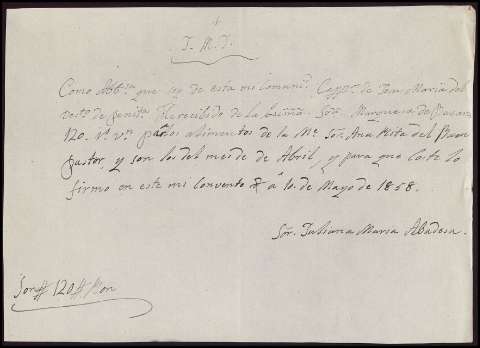 J. M. J.
Como Abb.sa que soy de esta mi Comun.d Capp.s de Jesus Maria del
de la Exma. Sra. Marquesa de
120. r.s v.n para los alimentos de la M.e Sor Ana Rita del Buen
Pastor, y son los del mes de de Abril, y para que coste lo
firmo en este mi convento á 10. de Mayo de 1858.
Sor. Juliana Maria Abadesa.
Son 120 Rvon